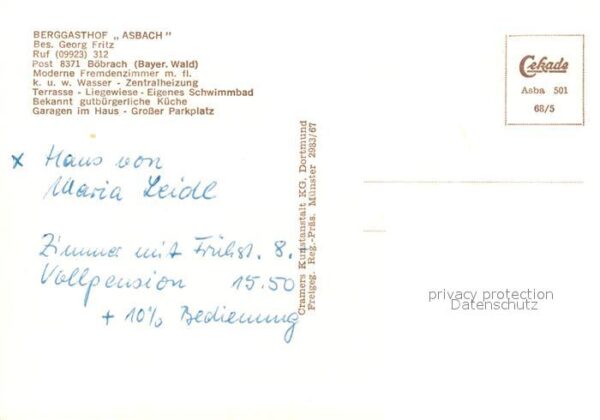 BERGGASTHOF „ASBACH"
Bes. Georg Fritz
Ruf (09923) 312
Post 8371 Böbrach (Bayer. Wald)
Moderne Fremdenzimmer m. fl.
k. u. w. Wasser - Zentralheizung
Terrasse - Liegewiese - Eigenes Schwimmbad
Bekannt gutbürgerliche Küche
Garagen im Haus - Großer Parkplatz
x Haus von
Maria Leidl
Zimmer mit Frühst. 8.
Vollpension 15.50
+ 10% Bedienung
Cramers Kunstanstalt KG, Dortmund
Freigeg. Reg.-Präs. Münster 2983/67
Cekade
Asba 501
68/5
privacy protection
Datenschutz